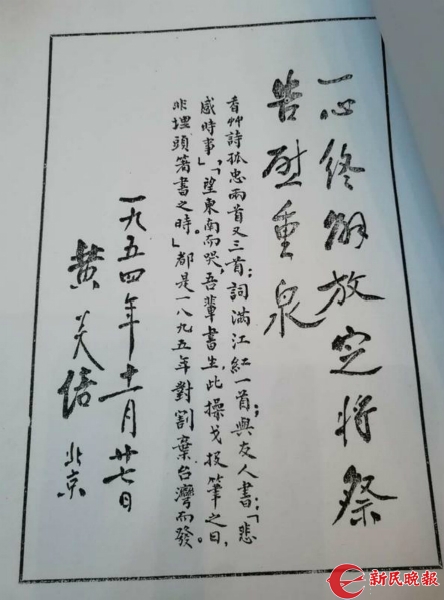 一心终解放定将祭
告慰重泉
香艸詩孤忠两首又三首；詞滿江紅一首；與友人書；「悲
感時事」，「望東南而哭，吾輩書生，此操戈投筆之日，
非埋頭著書之時。」都是一八九五年對割棄台灣而發
一九五四年十一月廿七日
黄炎培 北京
新民晚報